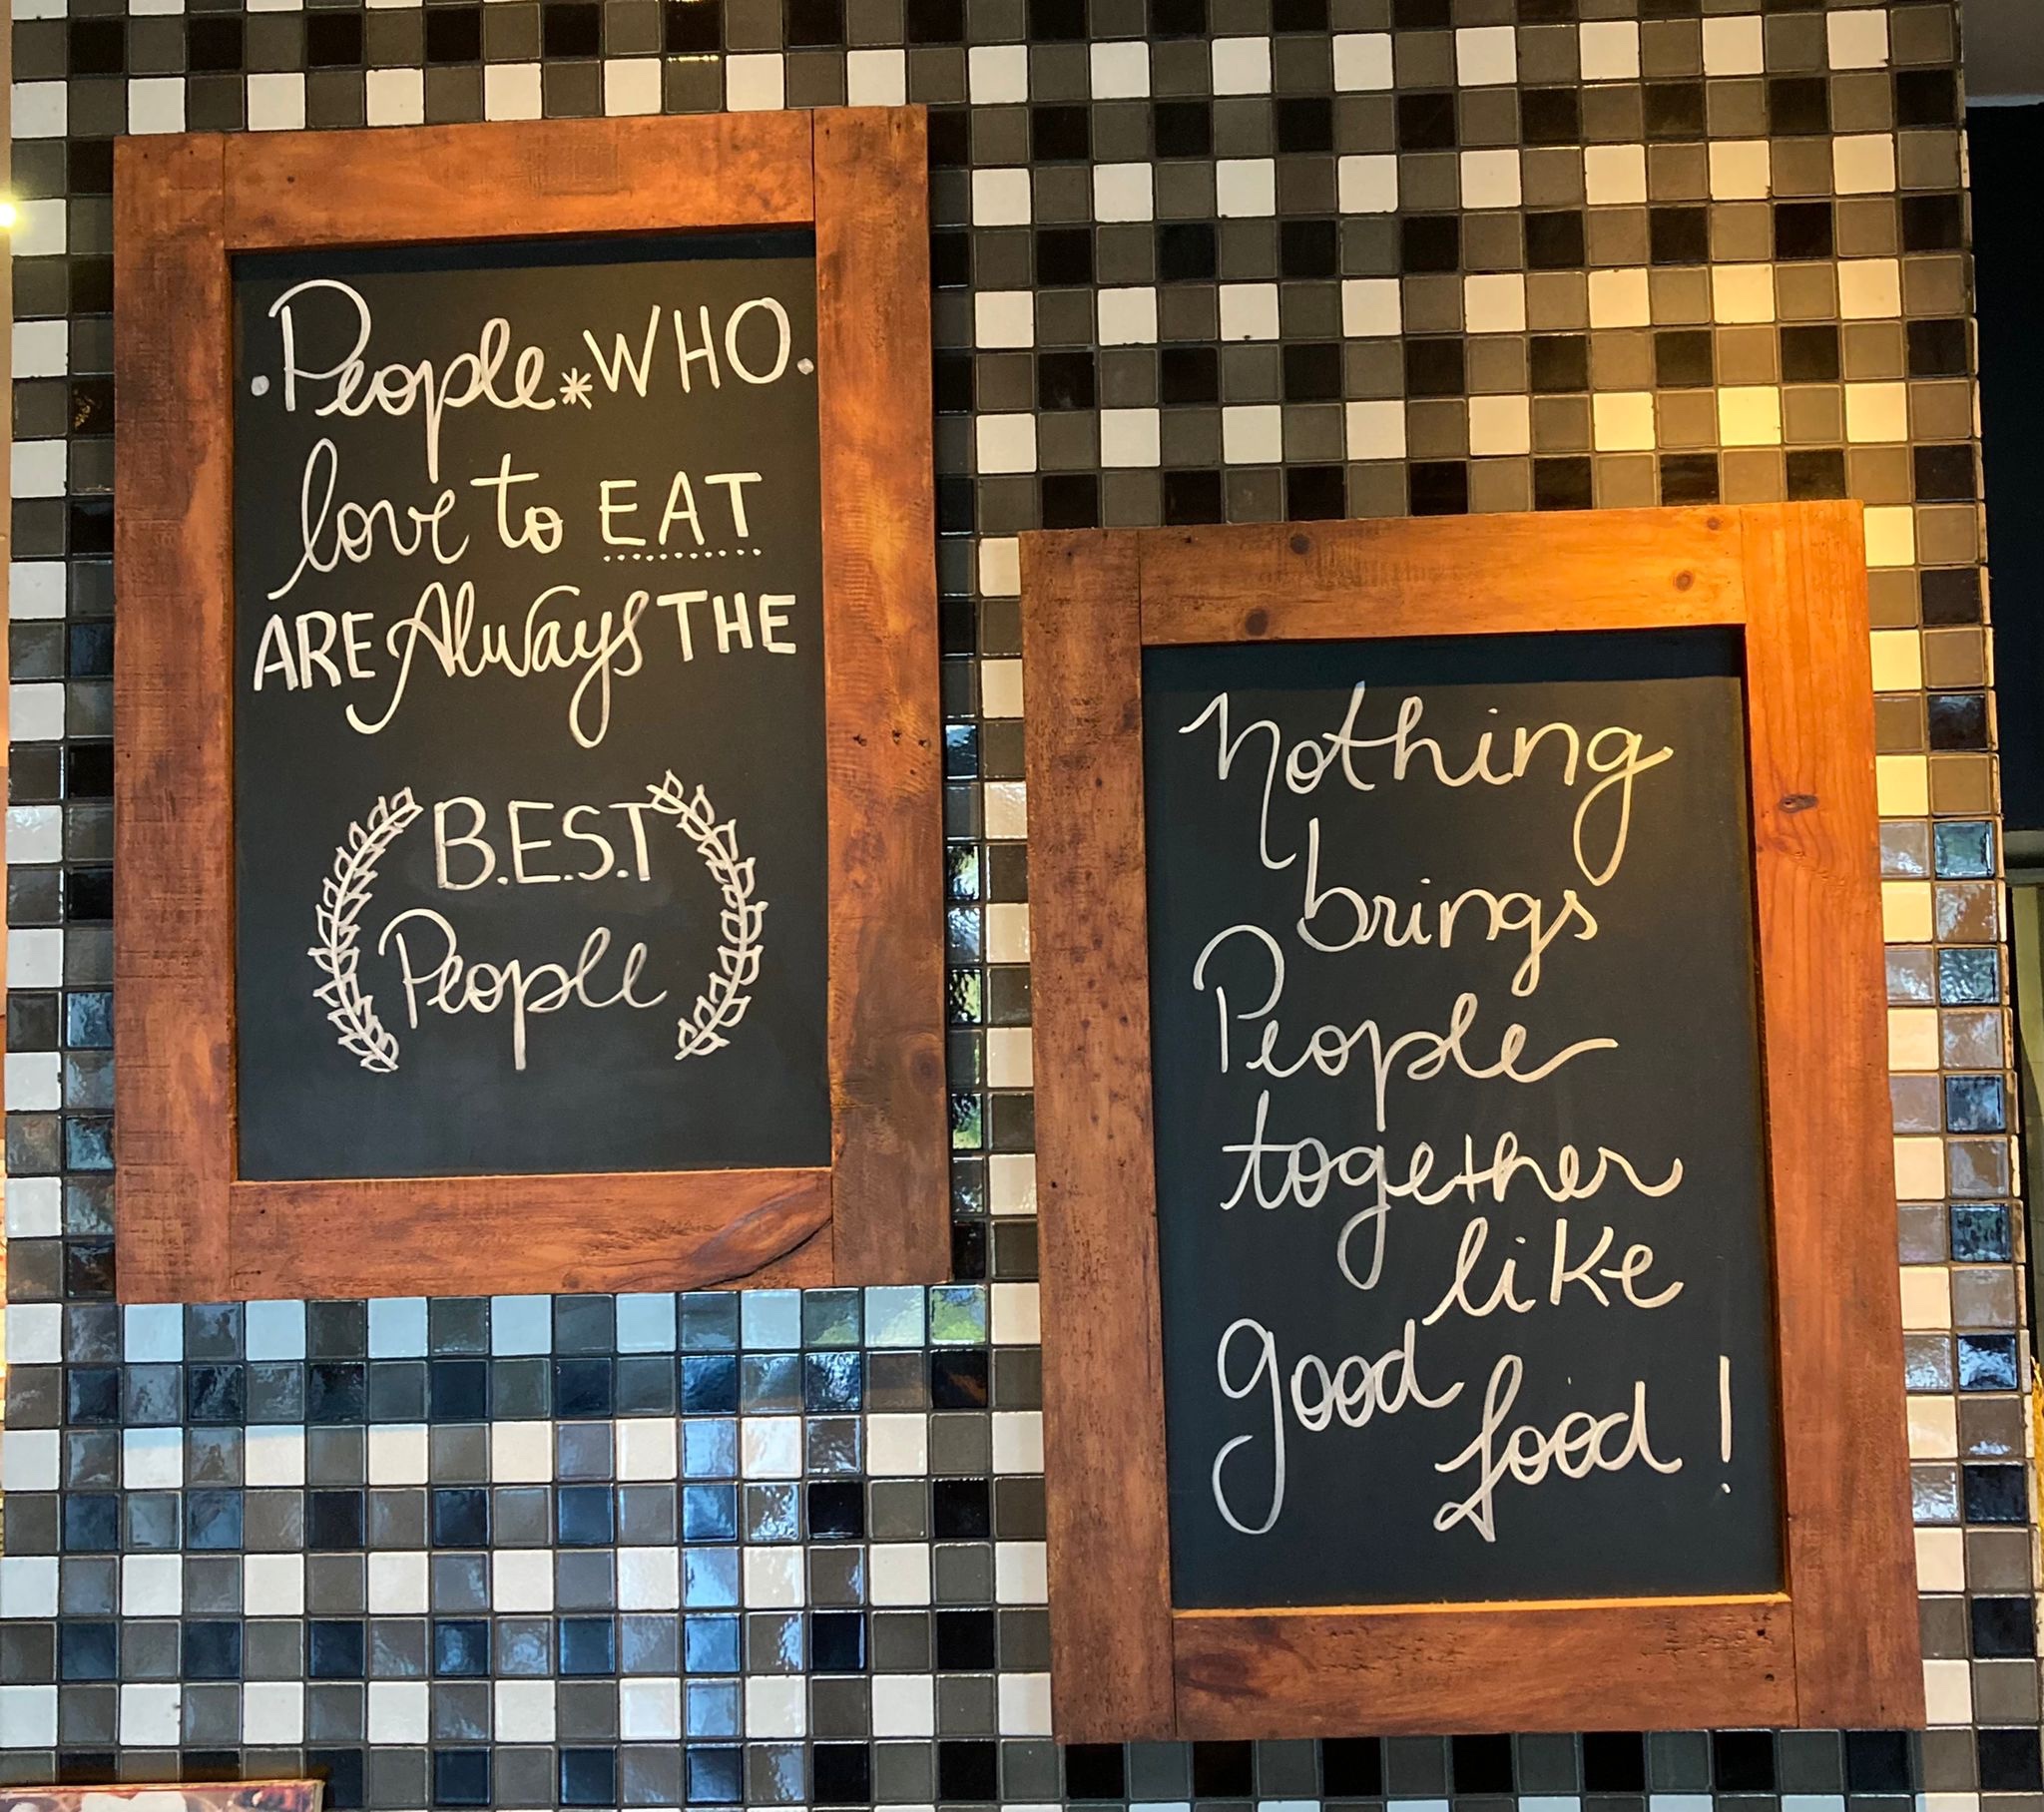 .People*WHO.
love to EAT
ARE Always THE
B.E.S.T
People
Nothing
brings
People
together
like
good
food!